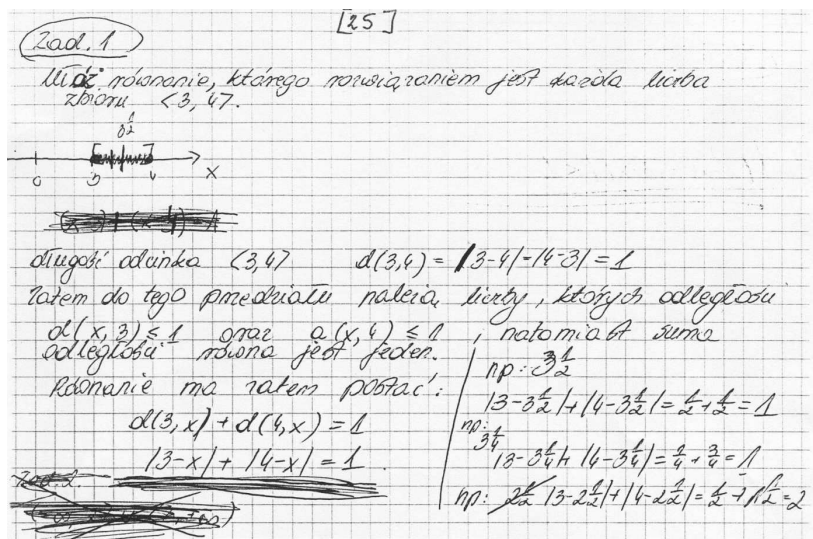 [25]
Zad. 1
Ułóż równanie, którego rozwiązaniem jest każda liczba
zbioru <3, 4>.
3½
0 3 4 x
długość odcinka <3,4> d(3,4) = |3-4| = |4-3| = 1
Zatem do tego przedziału należą liczby, których odległości
d(x,3) ≤ 1 oraz d(x,4) ≤ 1, natomiast suma
odległości równa jest jeden.
Równanie ma zatem postać:
d(3,x) + d(4,x) = 1
|3-x| + |4-x| = 1.
np: 3½
|3-3½| + |4-3½| = ½ + ½ = 1
np:
3¼ |3-3¼| + |4-3¼| = ¼ + ¾ = 1
np: 2½ |3-2½| + |4-2½| = ½ + 1½ = 2
Zad. 2.